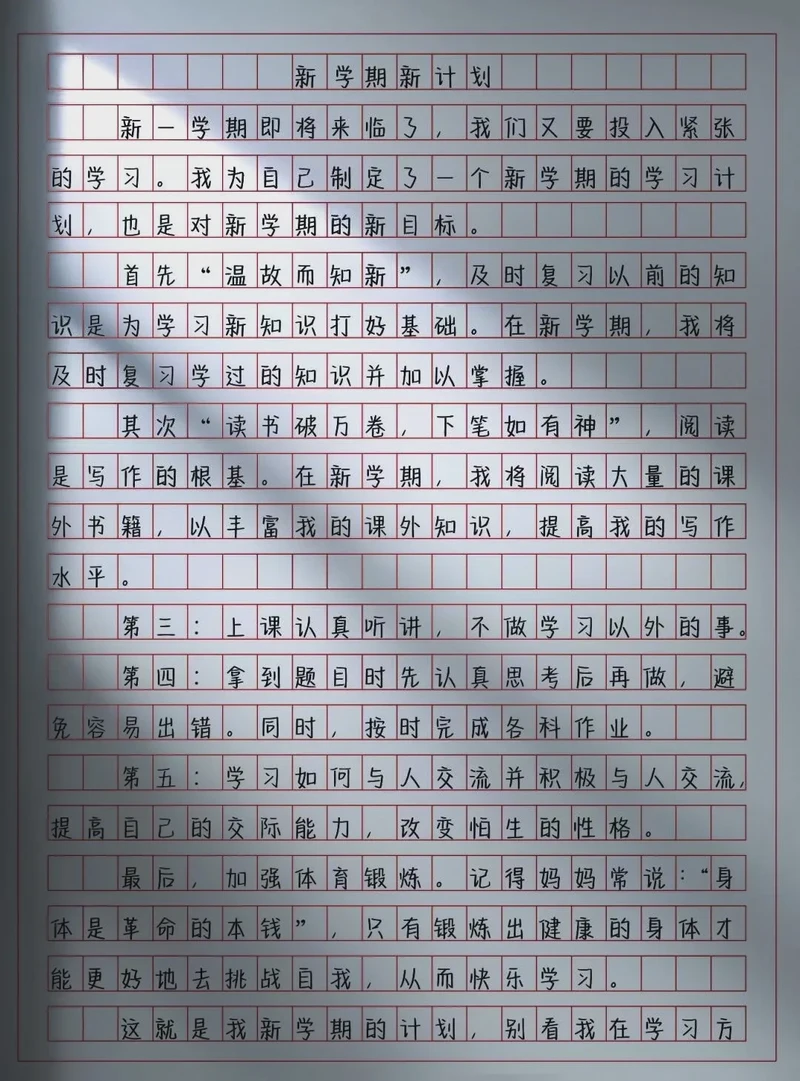 新学期新计划
新一学期即将来临了，我们又要投入紧张
的学习。我为自己制定了一个新学期的学习计
划，也是对新学期的新目标。
首先“温故而知新”，及时复习以前的知
识是为学习新知识打好基础。在新学期，我将
及时复习学过的知识并加以掌握。
其次“读书破万卷，下笔如有神”，阅读
是写作的根基。在新学期，我将阅读大量的课
外书籍，以丰富我的课外知识，提高我的写作
水平。
第三：上课认真听讲，不做学习以外的事。
第四：拿到题目时先认真思考后再做，避
免容易出错。同时，按时完成各科作业。
第五：学习如何与人交流并积极与人交流，
提高自己的交际能力，改变怕生的性格。
最后，加强体育锻炼。记得妈妈常说：“身
体是革命的本钱”，只有锻炼出健康的身体才
能更好地去挑战自我，从而快乐学习。
这就是我新学期的计划，别看我在学习方